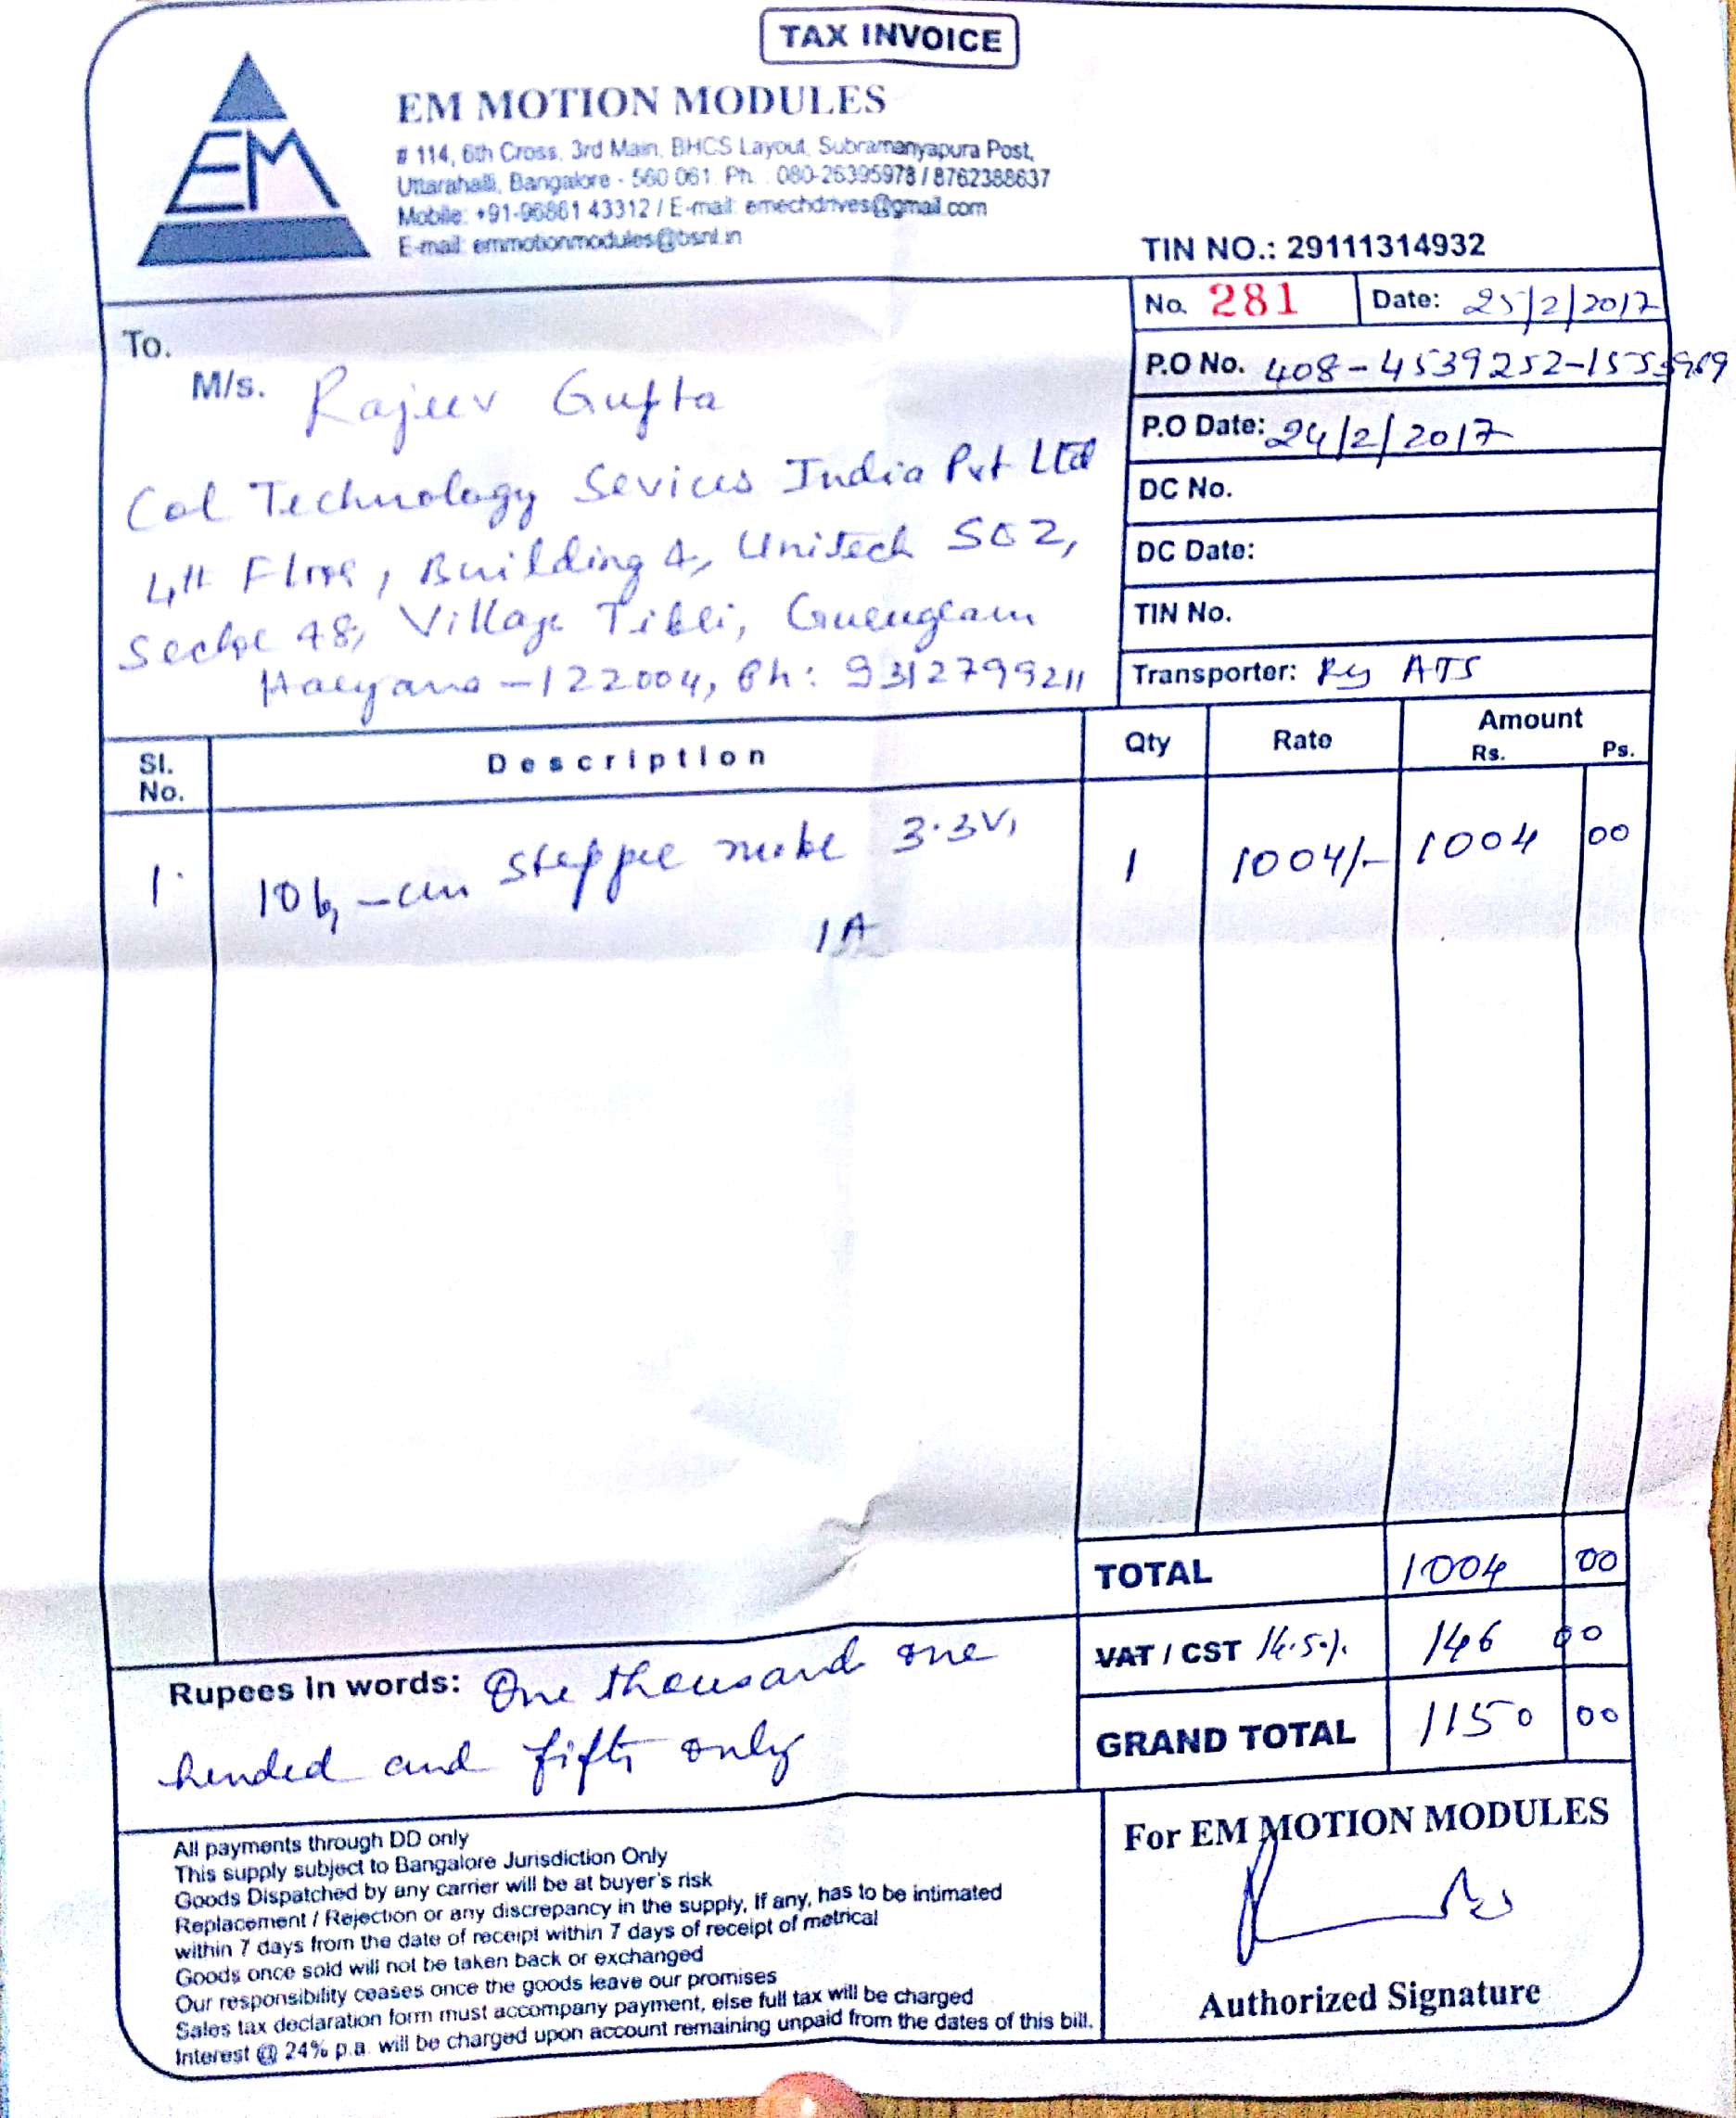 TAX INVOICE
EM
EM MOTION MODULES
# 114, 6th Cross, 3rd Main, BHCS Layout, Subramanyapura Post,
Uttarahalli, Bangalore - 560 061. Ph. : 080-26395978 / 8762388637
Mobile: +91-96861 43312 / E-mail: emechdrives@gmail.com
E-mail: emmotionmodules@bsnl.in
TIN NO.: 29111314932
No. 281 Date: 25/2/2017
To.
M/s. Rajeev Gupta
P.O No. 408-4539252-1555969
P.O Date: 24/2/2017
Col Technology Sevices India Pvt Ltd
DC No.
4th Floor, Building A, Unitech SEZ,
DC Date:
Sector 48, Village Tikri,
TIN No.
Haryana - 122004, Ph: 9312799211
Transporter: By ATS
Sl. No. Description Qty Rate Amount Rs. Ps.
1. 10kg-cm stepper 3.3V, 1 1004/- 1004 00
1A
TOTAL 1004 00
VAT / CST 14.5% 146 00
Rupees in words: One thousand one
GRAND TOTAL 1150 00
hunded and fifty only
All payments through DD only
This supply subject to Bangalore Jurisdiction Only
Goods Dispatched by any carrier will be at buyer's risk
Replacement / Rejection or any discrepancy in the supply, If any, has to be intimated
within 7 days from the date of receipt within 7 days of receipt of metrical
Goods once sold will not be taken back or exchanged
Our responsibility ceases once the goods leave our promises
Sales tax declaration form must accompany payment, else full tax will be charged
Interest @ 24% p.a. will be charged upon account remaining unpaid from the dates of this bill.
For EM MOTION MODULES
Authorized Signature